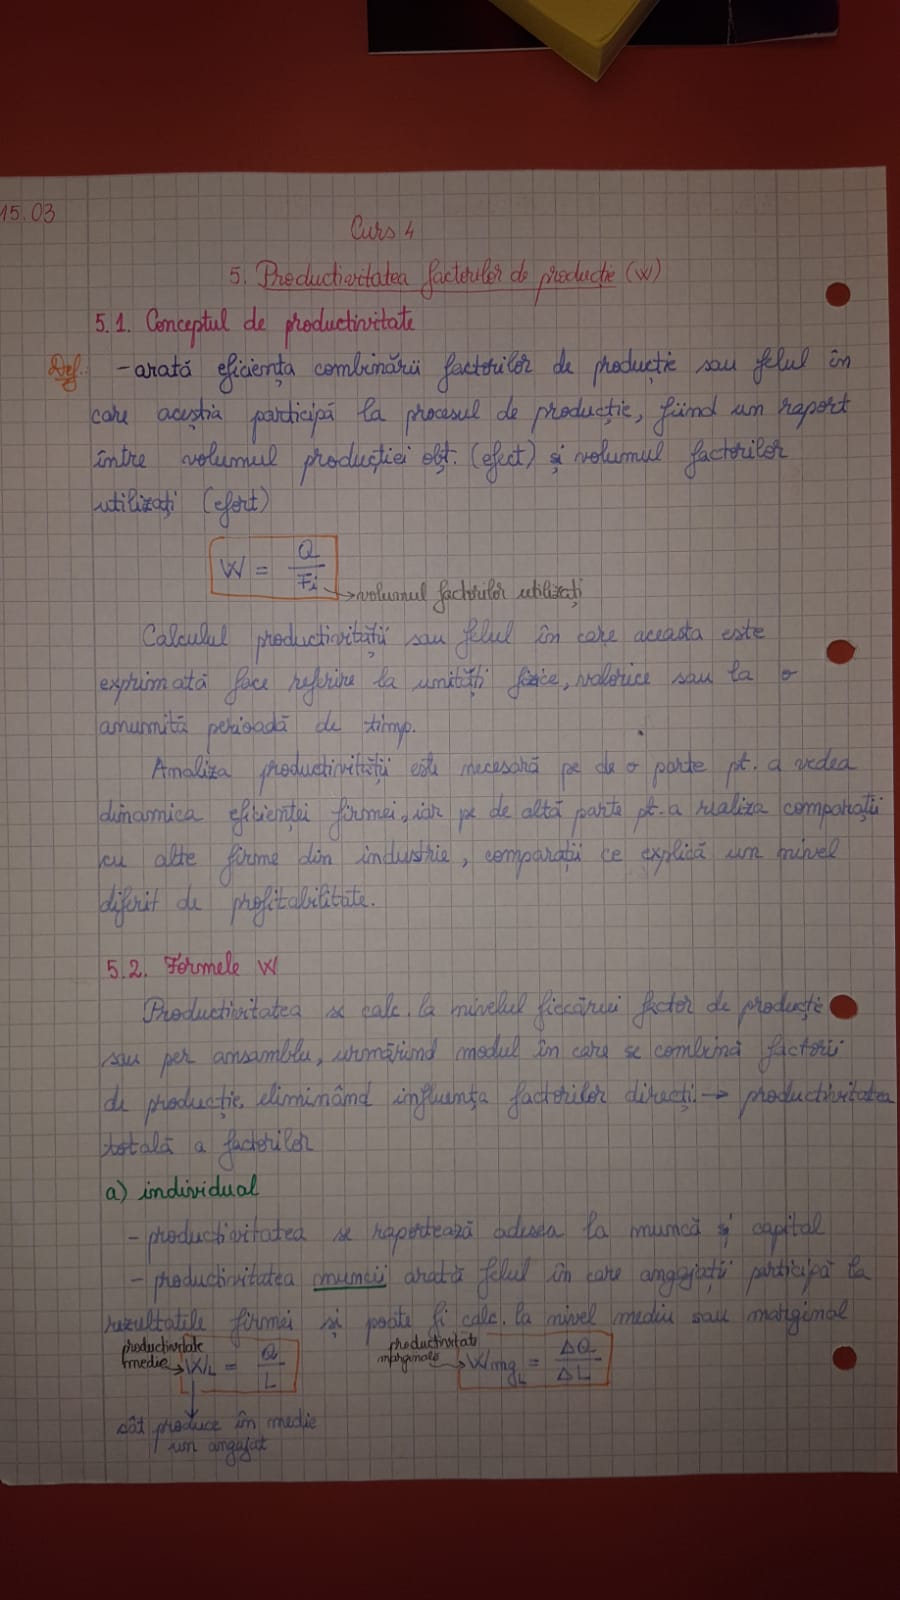 15.03
Curs 4
5. Productivitatea factorilor de producție (W)
5.1. Conceptul de productivitate
Def: - arată eficiența combinării factorilor de producție sau felul în
care aceștia participă la procesul de producție, fiind un raport
între volumul producției obț. (efect) și volumul factorilor
utilizați (efort)
W = Q / Fi → volumul factorilor utilizați
Calculul productivității sau felul în care aceasta este
exprimată face referire la unități fizice, valorice sau la o
anumită perioadă de timp.
Analiza productivității este necesară pe de o parte pt. a vedea
dinamica eficienței firmei, iar pe de altă parte pt. a realiza comparații
cu alte firme din industrie, comparații ce explică un nivel
diferit de profitabilitate.
5.2. Formele W
Productivitatea se calc. la nivelul fiecărui factor de producție
sau per ansamblu, urmărind modul în care se combină factorii
de producție, eliminând influența factorilor direcți → productivitatea
totală a factorilor
a) individual
- productivitatea se raportează adesea la muncă și capital
- productivitatea muncii arată felul în care angajații participă la
rezultatele firmei și poate fi calc. la nivel mediu sau marginal
productivitate medie → WL = Q / L
productivitate marginală → WmgL = ΔQ / ΔL
cât produce în medie
un angajat